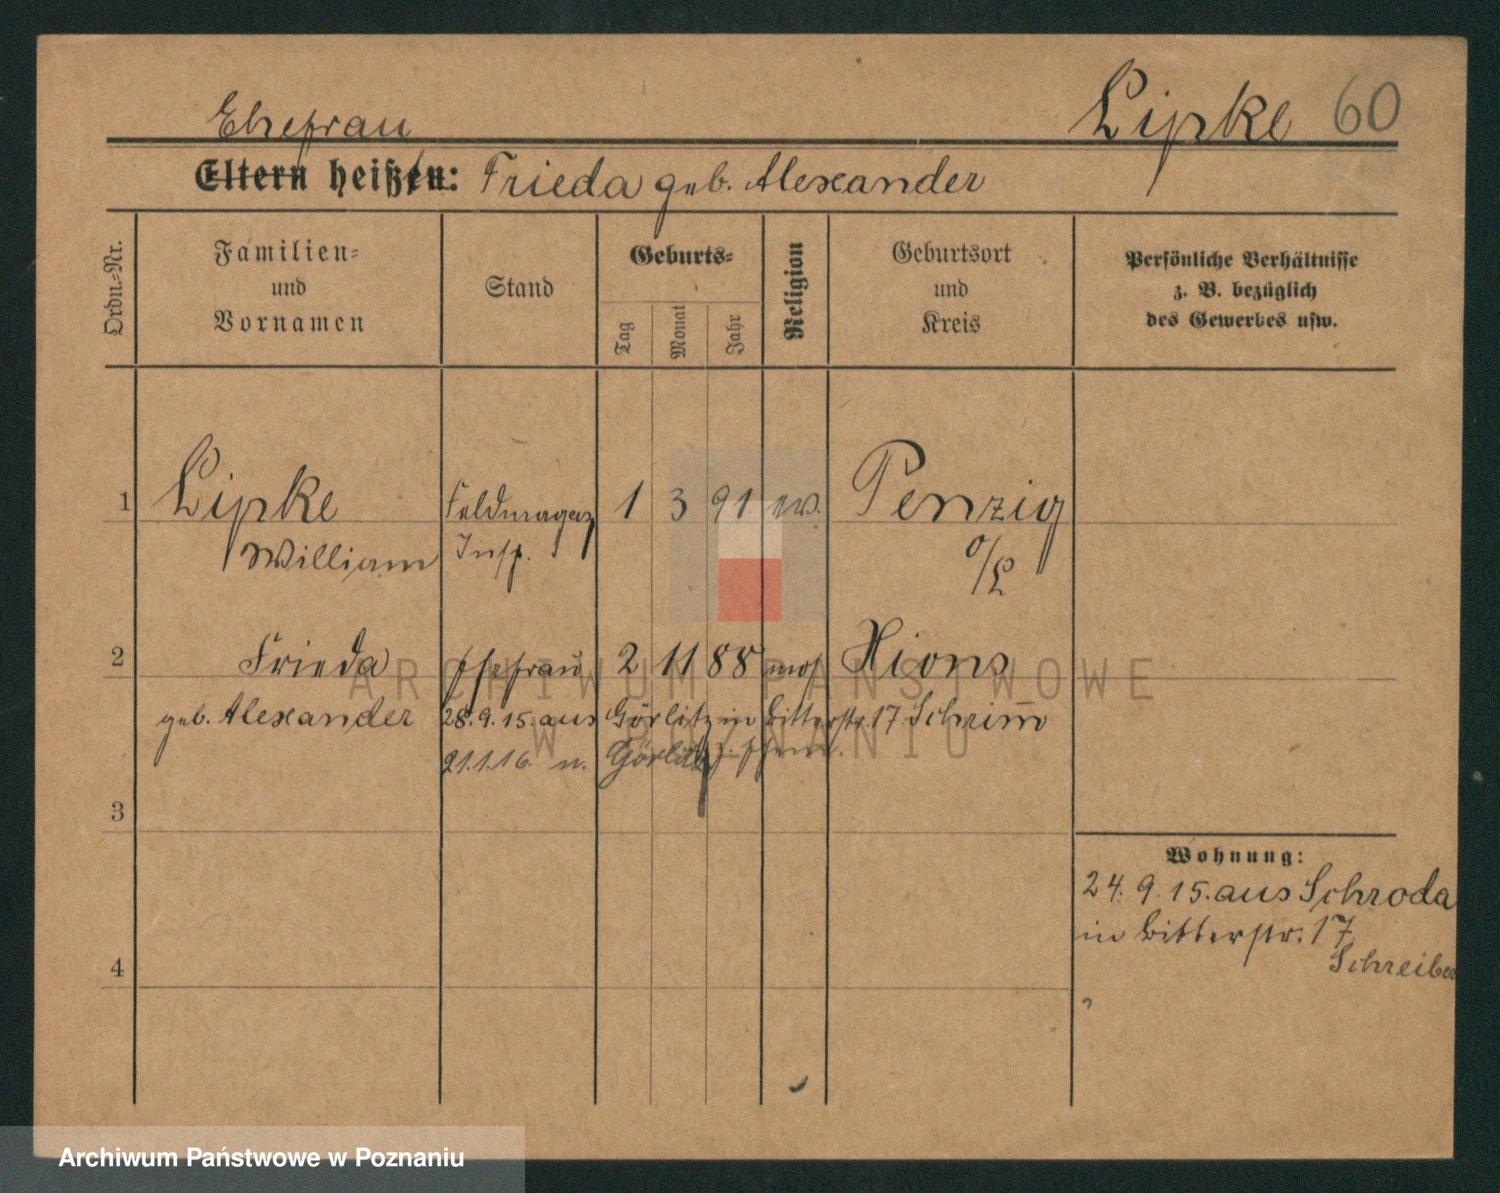 Lipke 60
Ehefrau
Eltern heißen: Frieda geb. Alexander
Ordn.-Nr.
Familien-
und
Vornamen
Stand
Geburts-
Tag
Monat
Jahr
Religion
Geburtsort
und
Kreis
Persönliche Verhältnisse
z. B. bezüglich
des Gewerbes usw.
1 Lipke Feldmagaz 1 3 91. ev. Penzig
William Insp. O/L
2 Frieda Ehefrau 2 11 88 mos Xions
geb. Alexander 28.9.15. aus Görlitz in Bitterstr. 17 Schrimm
21.1.16. n. Görlitz
3
4
Wohnung:
24. 9. 15. aus Schroda
in Bitterstr. 17
Schreiber
ARCHIWUM PAŃSTWOWE
W POZNANIU
Archiwum Państwowe w Poznaniu